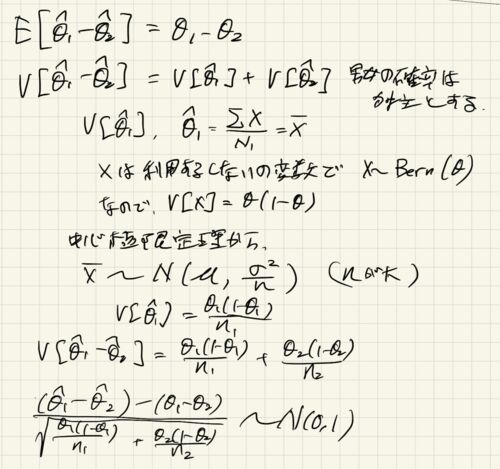 E[θ̂₁-θ̂₂] = θ₁-θ₂
V[θ̂₁-θ̂₂] = V[θ̂₁] + V[θ̂₂] 男女の確率は
独立とする.
V[θ̂₁], θ̂₁ = ΣX/N₁ = X̄
Xは利用するしないの変数で X~Bern(θ)
なので, V[X] = θ(1-θ)
中心極限定理から,
X̄ ~ N(μ, σ²/n) (n 大)
V[θ̂₁] = θ₁(1-θ₁)/n₁
V[θ̂₁-θ̂₂] = θ₁(1-θ₁)/n₁ + θ₂(1-θ₂)/n₂
(θ̂₁-θ̂₂)-(θ₁-θ₂) / √(θ₁(1-θ₁)/n₁ + θ₂(1-θ₂)/n₂) ~N(0,1)